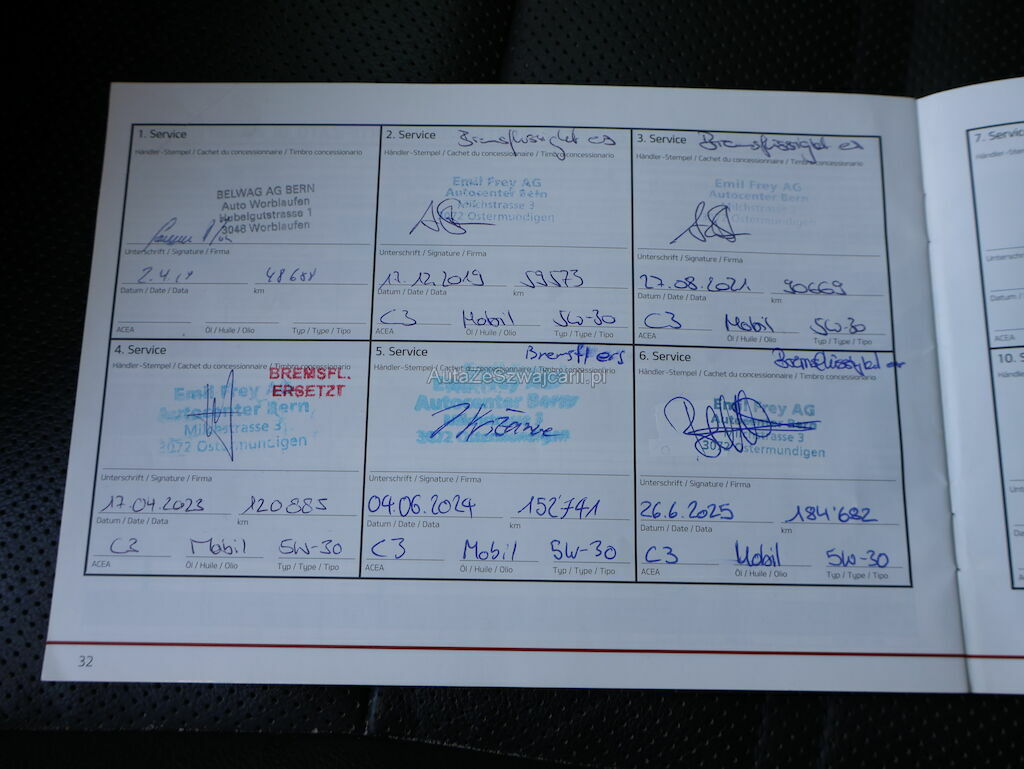 1. Service
Händler-Stempel / Cachet du concessionnaire / Timbro concessionario
BELWAG AG BERN
Auto Worblaufen
Hubelgutstrasse 1
3048 Worblaufen
Unterschrift / Signature / Firma
2.4.19
Datum / Date / Data km
ACEA Öl / Huile / Olio Typ / Type / Tipo
2. Service
Händler-Stempel / Cachet du concessionnaire / Timbro concessionario
Emil Frey AG
Autocenter Bern
Milchstrasse 3
3072 Ostermundigen
Unterschrift / Signature / Firma
17.12.2019 59573
Datum / Date / Data km
C3 Mobil 5W-30
ACEA Öl / Huile / Olio Typ / Type / Tipo
3. Service Bremsflüssigkeit
Händler-Stempel / Cachet du concessionnaire / Timbro concessionario
Emil Frey AG
Autocenter Bern
Milchstrasse 3
3072 Ostermundigen
Unterschrift / Signature / Firma
27.08.2021 90669
Datum / Date / Data km
C3 Mobil 5W-30
ACEA Öl / Huile / Olio Typ / Type / Tipo
4. Service
Händler-Stempel / Cachet du concessionnaire / Timbro concessionario
BREMSFL.
ERSETZT
Emil Frey AG
Autocenter Bern
Milchstrasse 3
3072 Ostermundigen
Unterschrift / Signature / Firma
17.04.2023 120885
Datum / Date / Data km
C3 Mobil 5W-30
ACEA Öl / Huile / Olio Typ / Type / Tipo
5. Service Bremsfl ers
Händler-Stempel / Cachet du concessionnaire / Timbro concessionario
AutaZeSzwajcarii.pl
Emil Frey AG
Autocenter Bern
Milchstrasse 3
3072 Ostermundigen
Unterschrift / Signature / Firma
04.06.2024 152'741
Datum / Date / Data km
C3 Mobil 5W-30
ACEA Öl / Huile / Olio Typ / Type / Tipo
6. Service Bremsflüssigkeit
Händler-Stempel / Cachet du concessionnaire / Timbro concessionario
Emil Frey AG
Autocenter Bern
Milchstrasse 3
3072 Ostermundigen
Unterschrift / Signature / Firma
26.6.2025 184'682
Datum / Date / Data km
C3 Mobil 5W-30
ACEA Öl / Huile / Olio Typ / Type / Tipo
32
7. Servic
Händler-Stem
Datum /
ACEA
10. S